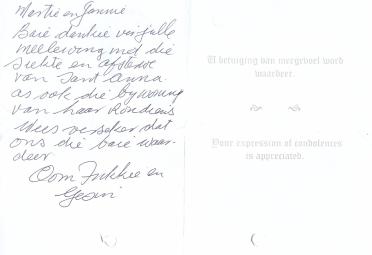 Martie en Jannie
Baie dankie vir julle
meelewing met die
siekte en afsterwe
van Tant Anna.
as ook die bywoning
van haar Roudiens
Wees verseker dat
ons die baie waar-
deer
Oom Fukkie en
Gesin
U betuiging van meegevoel word
waardeer.
Your expression of condolences
is appreciated.